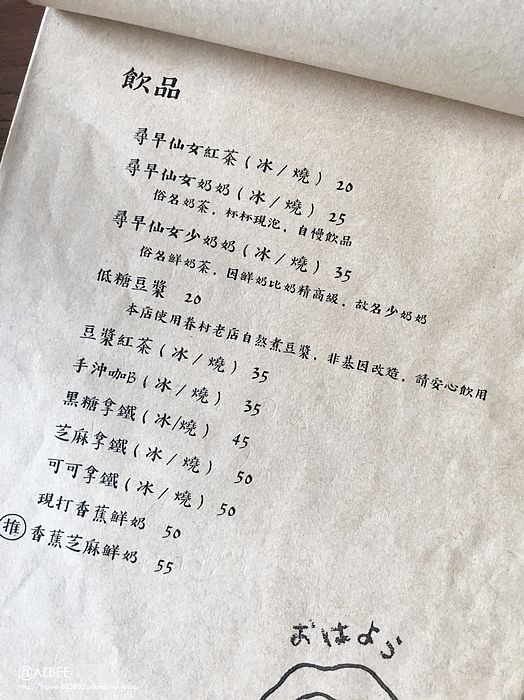 飲品
尋早仙女紅茶(冰/燒) 20
尋早仙女奶奶(冰/燒) 25
俗名奶茶，杯杯現泡，自慢飲品
尋早仙女少奶奶(冰/燒) 35
俗名鮮奶茶，因鮮奶比奶精高級，故名少奶奶
低糖豆漿 20
本店使用眷村老店自然煮豆漿，非基因改造，請安心飲用
豆漿紅茶(冰/燒) 35
手沖咖B(冰/燒) 35
黑糖拿鐵(冰/燒) 45
芝麻拿鐵(冰/燒) 50
可可拿鐵(冰/燒) 50
現打香蕉鮮奶 50
推 香蕉芝麻鮮奶 55
おはよう
@ALBEE